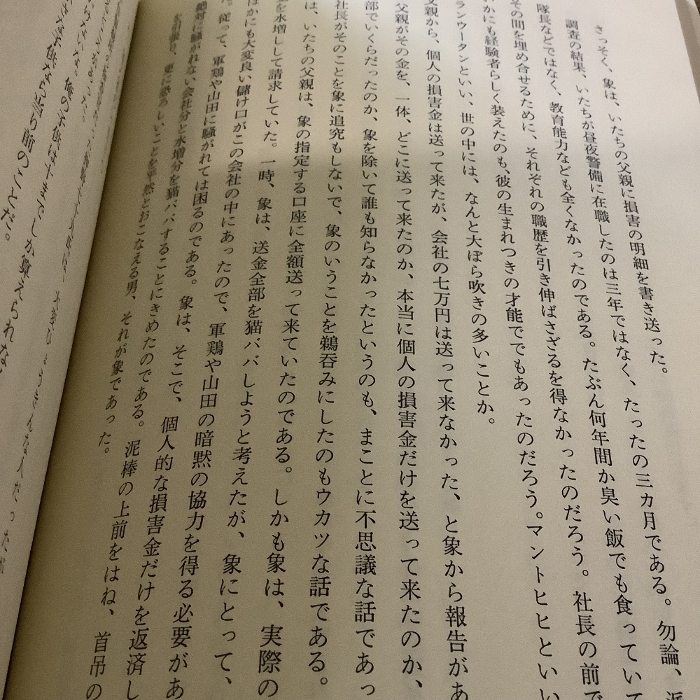 さっそく、象は、いたちの父親に損害の明細を書き送った。
調査の結果、いたちが昼夜警備に在職したのは三年ではなく、たったの三カ月である。勿論、
隊長などではなく、教育能力なども全くなかったのである。たぶん何年間か臭い飯でも食ってい
その間を埋め合せるために、それぞれの職歴を引き伸ばさざるを得なかったのだろう。社長の前で
かにも経験者らしく装えたのも、彼の生まれつきの才能ででもあったのだろう。マントヒヒとい
ランウータンといい、世の中には、なんと大ぼら吹きの多いことか。
父親から、個人の損害金は送って来たが、会社の七万円は送って来なかった、と象から報告があ
父親がその金を、一体、どこに送って来たのか、本当に個人の損害金だけを送って来たのか、
部でいくらだったのか、象を除いて誰も知らなかったというのも、まことに不思議な話であっ
社長がそのことを象に追究もしないで、象のいうことを鵜呑みにしたのもウカツな話である。
は、いたちの父親は、象の指定する口座に全額送って来ていたのである。しかも象は、実際の
を水増しして請求していた。一時、象は、送金全部を猫ババしようと考えたが、象にとって、
ほかにも大変良い儲け口がこの会社の中にあったので、軍鶏や山田の暗黙の協力を得る必要があ
。従って、軍鶏や山田に騒がれては困るのである。象は、そこで、個人的な損害金だけを返済し
絶対に騒がれない会社分と水増分を猫ババすることにきめたのである。泥棒の上前をはね、首吊の
更に恐ろしいことを平然とおこなえる男、それが象であった。
俺の子供は十までしか算えられな
子供なら当り前のことだ。